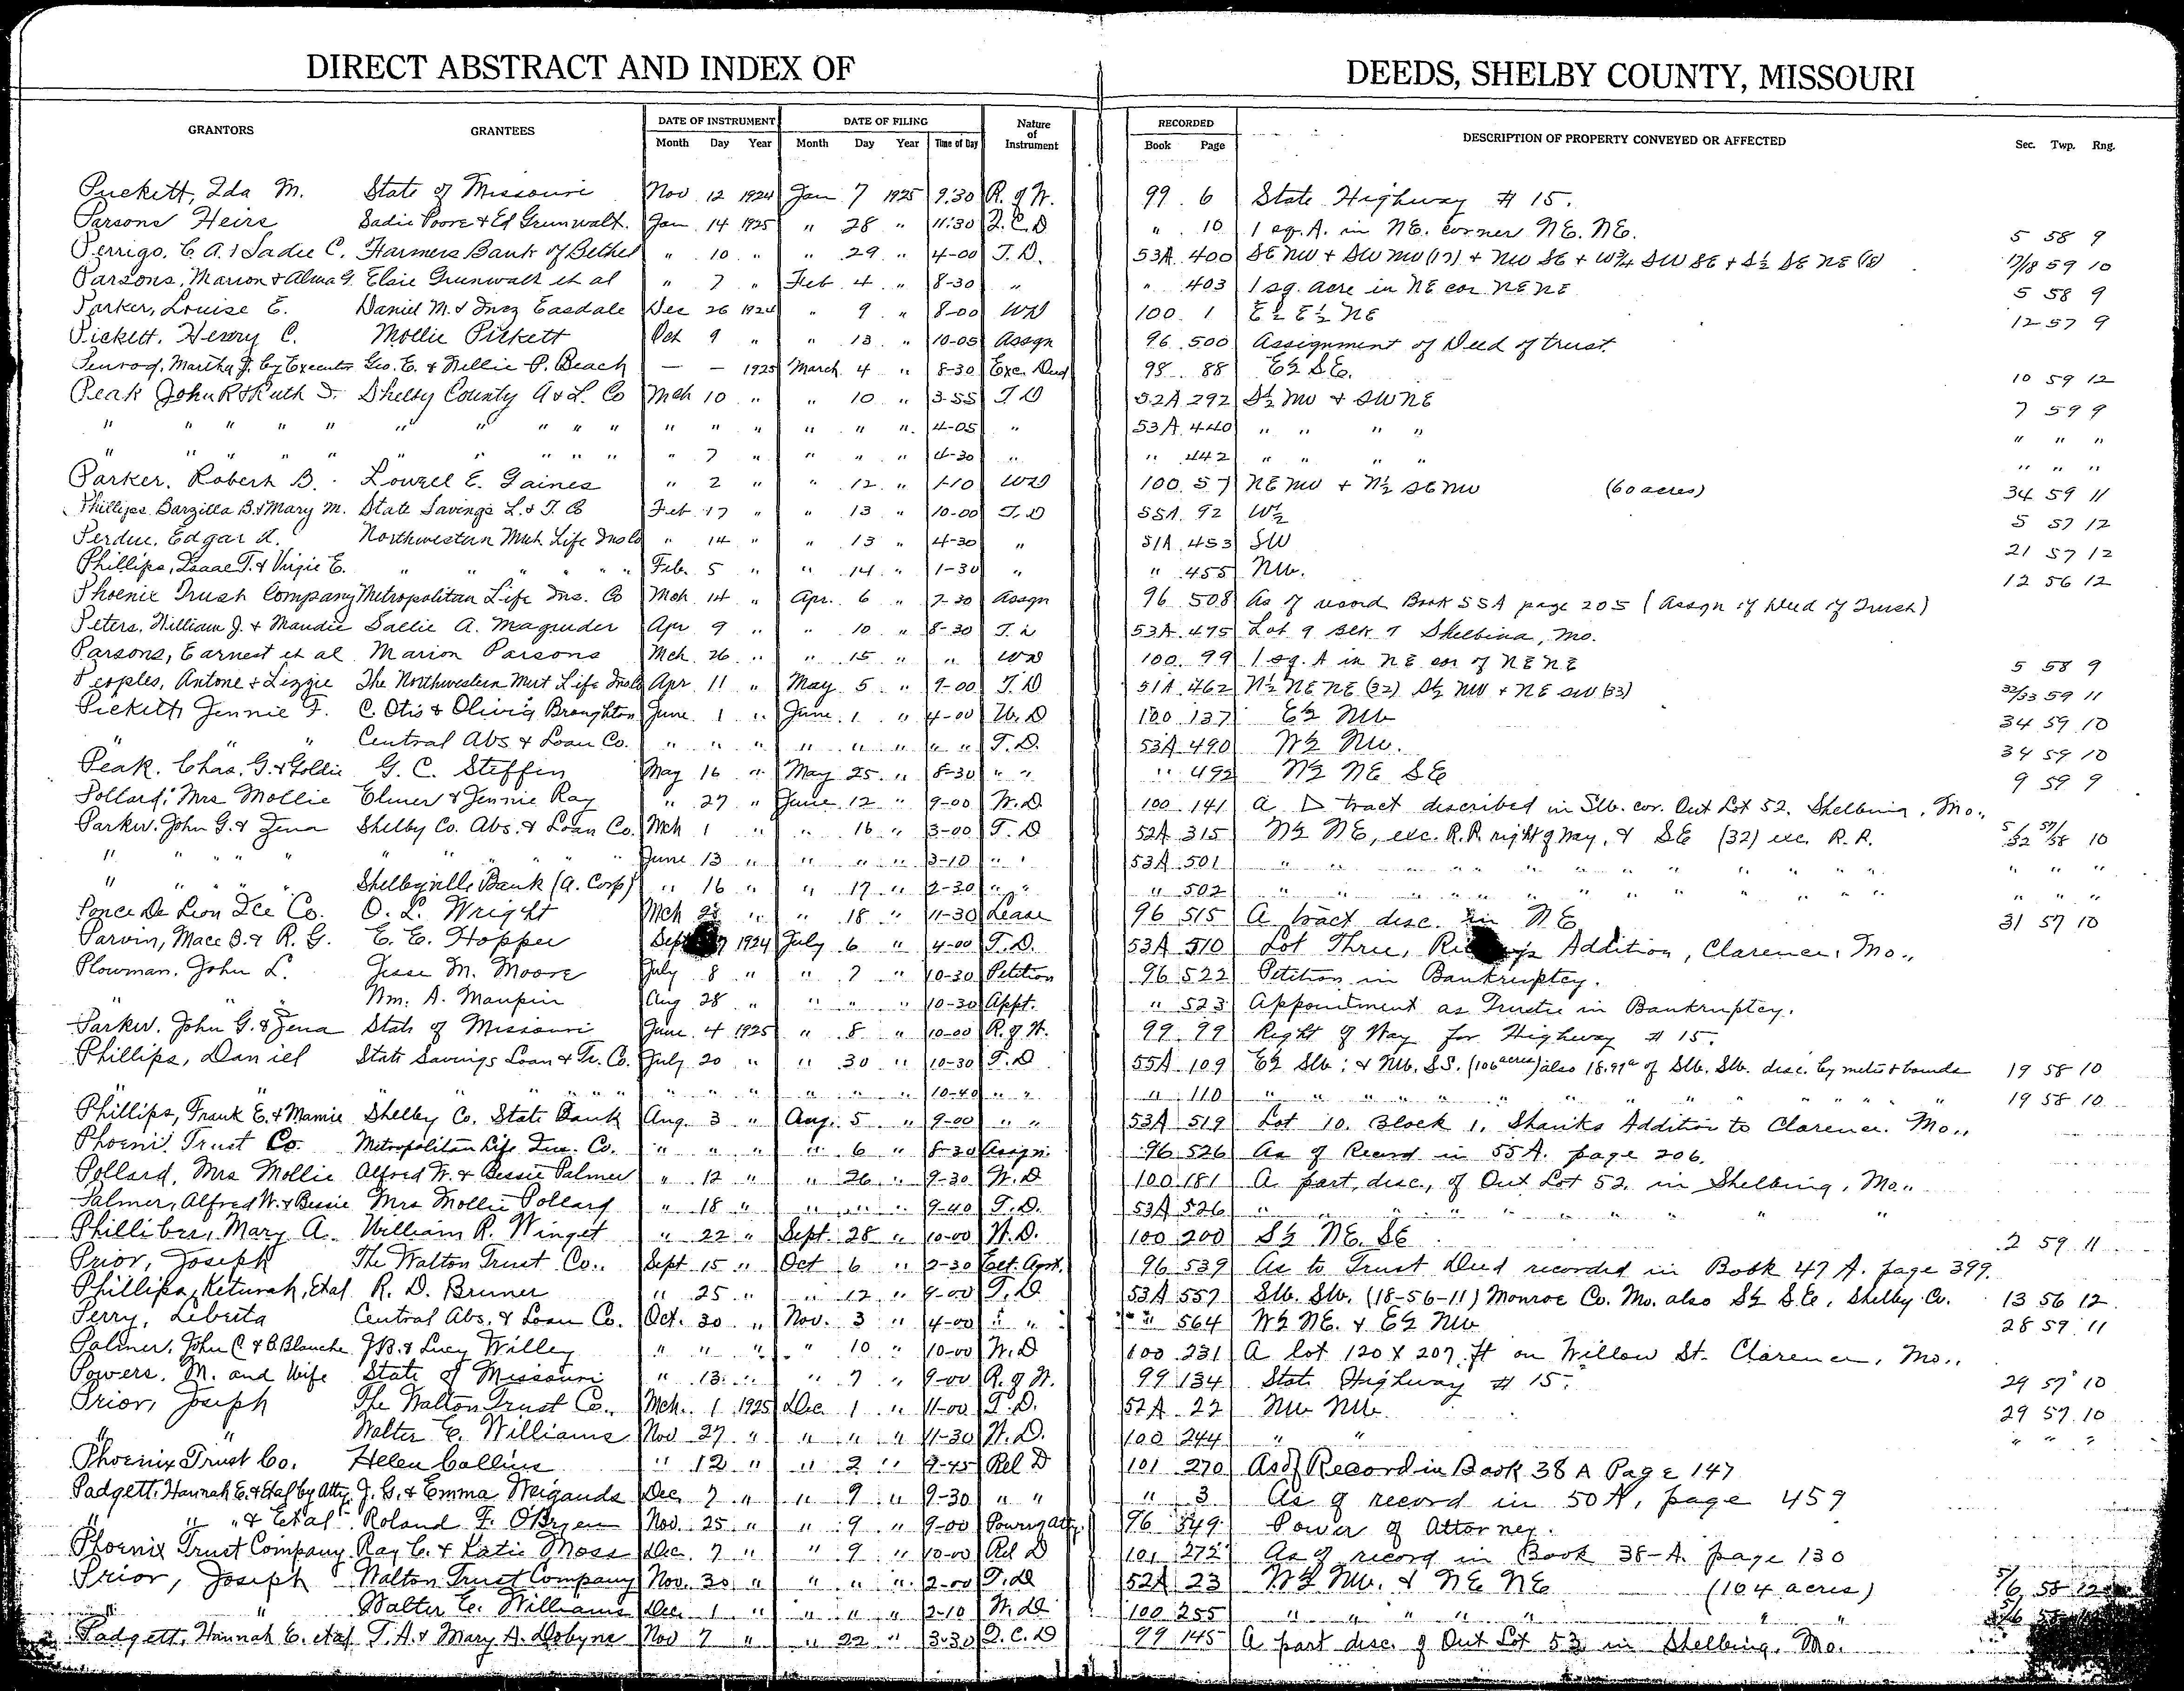 DIRECT ABSTRACT AND INDEX OF DEEDS, SHELBY COUNTY, MISSOURI
GRANTORS GRANTEES DATE OF INSTRUMENT DATE OF FILING Nature of Instrument RECORDED DESCRIPTION OF PROPERTY CONVEYED OR AFFECTED Sec. Twp. Rng.
Month Day Year Month Day Year Time of Day Book Page
Puckett, Ida M. State of Missouri Nov 12 1924 Jan 7 1925 9:30 R. of W. 99 6 State Highway # 15.
Parsons Heirs Sadie Poore & Ed Grunwalt. Jan 14 1925 " 28 " 11:30 Q.C.D " 10 1 sq. A. in NE. corner NE. NE. 5 58 9
Perrigo, C. A. & Sadie C. Farmers Bank of Bethel " 10 " " 29 " 4-00 T.D. 53A 400 SE NW + SW NW (17) + NW SE + W 3/4 SW SE + S½ SE NE (18) 17/18 59 10
Parsons, Marion & Alma G. Elsie Grunwalt et al " 7 " Feb 4 " 8-30 " " 403 1 sq. acre in NE cor NE NE 5 58 9
Parker, Louise E. Daniel M. & Inez Easdale Dec 26 1924 " 9 " 8-00 WD 100 1 E½ E½ NE 12 57 9
Pickett, Henry C. Mollie Pickett Oct 9 " " 13 " 10-05 Assgn 96 500 Assignment of Deed of trust.
Penrod, Martha J. by Executor Geo. E. & Nellie P. Beach — — 1925 March 4 " 8-30 Exc. Deed 98 88 E½ SE. 10 59 12
Peak John R & Ruth I. Shelby County A & L. Co Mch 10 " " 10 " 3-55 T D 52A 292 S½ NW + SW NE 7 59 9
" " " " " " " " " " " " " " " 4-05 " 53A 440 " " " " " " "
" " " " " " " " " " " 7 " " " " 4-30 " " 442 " " " " " " "
Parker, Robert B. Lowell E. Gaines " 2 " " 12 " 1-10 WD 100 57 NE NW + N½ SE NW (60 acres) 34 59 11
Phillips Barzilla B. & Mary M. State Savings L. & T. Co Feb 17 " " 13 " 10-00 T.D 55A 92 W½ 5 57 12
Perdue, Edgar L. Northwestern Mut. Life Ins Co " 14 " " 13 " 4-30 " 51A 453 SW 21 57 12
Phillips, Isaac T. & Virgie E. " " " " " Feb. 5 " " 14 " 1-30 " " 455 NW. 12 56 12
Phoenix Trust Company Metropolitan Life Ins. Co Mch 14 " Apr. 6 " 7-30 Assgn 96 508 As of record Book 55A page 205 (Assgn of Deed of Trust)
Peters, William J. & Maudie Sallie A. Magruder Apr 9 " " 10 " 8-30 T.D 53A 475 Lot 9 Blk 9 Shelbina, Mo.
Parsons, Earnest et al Marion Parsons Mch 26 " " 15 " " WD 100 99 1 sq. A in NE cor of NE NE 5 58 9
Peoples, Antone & Lizzie The Northwestern Mut Life Ins Co Apr 11 " May 5 " 9-00 T.D 51A 462 N½ NE NE (32) S½ NW + NE SW (33) 32/33 59 11
Pickett, Jennie F. C. Otis & Olivia Broughton June 1 " June 1 " 4-00 W.D 100 137 E½ NW 34 59 10
" " " Central Abs & Loan Co. " " " " " " " " T.D. 53A 490 W½ NW. 34 59 10
Peak, Chas. G. & Goldie G. C. Steffen May 16 " May 25 " 8-30 " " " 492 W½ NE SE 9 59 9
Pollard, Mrs Mollie Elmer & Jennie Ray " 27 " June 12 " 9-00 W.D 100 141 A ▷ tract described in SW. cor. Out Lot 52. Shelbina, Mo.,
Parker, John G. & Zena Shelby Co. Abs. & Loan Co. Mch 1 " " 16 " 3-00 T.D 52A 315 W½ NE, exc. R.R. right of way, & SE (32) exc. R.R. 5/32 57/58 10
" " " " " " June 13 " " " " 3-10 " " 53A 501 " " " " " " "
" " " " " Shelbyville Bank (A. Corp) " 16 " " 17 " 2-30 " " " 502 " " " " " " "
Ponce De Leon Ice Co. O. L. Wright Mch 28 " " 18 " 11-30 Lease 96 515 A tract desc. in NE 31 57 10
Parvin, Mace B. & R. G. E. E. Hopper Sept 1924 July 6 " 4-00 T.D. 53A 510 Lot Three, Addition, Clarence, Mo.,
Plowman, John L. Jesse M. Moore July 8 " " 7 " 10-30 Petition 96 522 Petition in Bankruptcy.
" " " Wm. A. Maupin Aug 28 " " " " 10-30 Appt. " 523 Appointment as Trustee in Bankruptcy.
Parker, John G. & Zena State of Missouri June 4 1925 " 8 " 10-00 R. of W. 99 99 Right of Way for Highway # 15.
Phillips, Daniel State Savings Loan & Tr. Co. July 20 " " 30 " 10-30 T.D 55A 109 E½ SW; & NW. SE. (106 acres) also 18.97a of SW. SW. desc. by metes & bounds 19 58 10
" " " " " " " " " " " " 10-40 " " " 110 " " " " " " " 19 58 10
Phillips, Frank E. & Mamie Shelby Co. State Bank Aug. 3 " Aug. 5 " 9-00 " " 53A 519 Lot 10. Block 1, Shanks Addition to Clarence. Mo.,
Phoenix Trust Co. Metropolitan Life Ins. Co. " " " " 6 " 8-30 Assgn. 96 526 As of Record in 55A. page 206.
Pollard, Mrs Mollie Alfred W. & Bessie Palmer " 12 " " 26 " 9-30 W.D 100 181 A part, desc., of Out Lot 52 in Shelbina, Mo.,
Palmer, Alfred W. & Bessie Mrs Mollie Pollard " 18 " " " " 9-40 T.D. 53A 526 " " " " " " "
Philliber, Mary A. William R. Winget " 22 " Sept. 28 " 10-00 W.D. 100 200 S½ NE. SE 2 59 11
Prior, Joseph The Walton Trust Co. Sept 15 " Oct 6 " 2-30 Ext. Agrt. 96 539 As to Trust Deed recorded in Book 47 A. page 399.
Phillips, Keturah, Etal R. D. Bruner " 25 " " 12 " 9-00 T.D 53A 557 SW. SW. (18-56-11) Monroe Co. Mo. also S½ SE, Shelby Co. 13 56 12
Perry, Leberta Central Abs. & Loan Co. Oct. 30 " Nov. 3 " 4-00 " " " 564 W½ NE. & E½ NW 28 59 11
Palmer, John C & B. Blanche J.B. & Lucy Willey " " " " 10 " 10-00 W.D 100 231 A lot 120 X 207 ft on Willow St. Clarence, Mo.,
Powers, M. and Wife State of Missouri " 13 " " 7 " 9-00 R. of W. 99 134 State Highway # 15. 29 57 10
Prior, Joseph The Walton Trust Co., Mch. 1 1925 Dec 1 " 11-00 T.D. 52A 22 NW NW. 29 57 10
" " Walter E. Williams Nov 27 " " " " 11-30 W.D. 100 244 " " " " "
Phoenix Trust Co. Helen Collins " 12 " " 2 " 9-45 Rel D 101 270 As of Record in Book 38 A Page 147
Padgett, Hannah E. & Etal by Atty. J. G. & Emma Weigands Dec. 7 " " 9 " 9-30 " " " 3 As of record in 50A, page 459
" " " & Etal Roland F. O'Bryen Nov. 25 " " 9 " 9-00 Power of Atty. 96 549 Power of Attorney.
Phoenix Trust Company Ray C. & Katie Moss Dec. 7 " " 9 " 10-00 Rel D 101 272 As of record in Book 38-A. page 130
Prior, Joseph Walton Trust Company Nov. 30 " " " " 2-00 T.D 52A 23 W½ NW. & NE NE (104 acres) 5/6 58 12
" " Walter E. Williams Dec. 1 " " " " 2-10 W.D 100 255 " " " " " " "
Padgett, Hannah E. etal T. A. & Mary A. Dobyns Nov 7 " " 22 " 3-30 Q.C.D 99 145 A part desc. of Out Lot 53 in Shelbina, Mo.